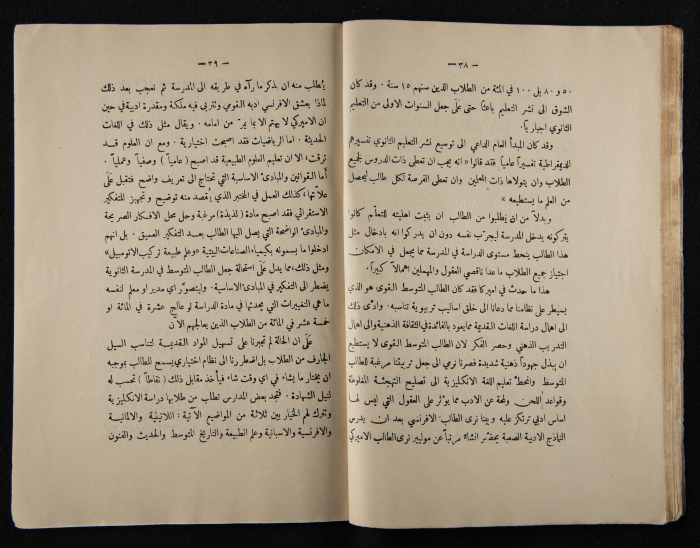 — ٣٨ —
٥٠ و ٨٠ بل ١٠٠ في المئة من الطلاب الذين سنهم ١٥ سنة . وقد كان
الشوق الى نشر التعليم باعثًا حتى على جعل السنوات الاولى من التعليم
الثانوي اجباريًا .
وقد كان المبدأ العام الداعي الى توسيع نشر التعليم الثانوي تفسيرهم
للديمقراطية تفسيرًا عاميًا فقد قالوا « انه يجب ان تعطى ذات الدروس لجميع
الطلاب وان يتولاها ذات المعلمين وان تعطى الفرصة لكل طالب ليحصل
من العلم ما يستطيعه »
وبدلاً من ان يطلبوا من الطالب ان يثبت اهليته للتعلم كانوا
يتركونه يدخل المدرسة ليجرّب نفسه دون ان يدركوا انه بادخال مثل
هذا الطالب ينحط مستوى الدراسة في المدرسة مما يجعل في الامكان
اجتياز جميع الطلاب ما عدا ناقصي العقول والمهملين اهمالاً كبيرًا .
هذا ما حدث في اميركا فقد كان الطالب المتوسط القوى هو الذي
يسيطر على نظامنا مما دعانا الى خلق اساليب تربيوية تناسبه . وادّى ذلك
الى اهمال دراسة اللغات القديمة مما يعود بالفائدة في الثقافة الذهنية والى اهمال
التدريب الذهني وحصر الفكر لان الطالب المتوسط القوى لا يستطيع
ان يبذل جهودًا ذهنية شديدة فصرنا نرمي الى جعل تربيتنا مرغبة للطالب
المتوسط وانحطّ تعليم اللغة الانكليزية الى تصليح التهجئة المغلوطة
وقواعد اللحن ولمحة عن الادب مما يؤثر على العقول التي ليس لها
اساس ادبي ترتكز عليه وبينا نرى الطالب الافرنسي بعد ان يدرس
النماذج الادبية الصعبة يحضّر انشاءً مرتبًا عن موليير نرى الطالب الاميركي
— ٣٩ —
يُطلب منه ان يذكر ما رآه في طريقه الى المدرسة ثم نعجب بعد ذلك
لماذا يعشق الافرنسي ادبه القومي وتتربى فيه ملكة ومقدرة ادبية في حين
ان الاميركي لا يهتم الا بما يمرّ من امامه . ويقال مثل ذلك في اللغات
الحديثة . اما الرياضيات فقد اصبحت اختيارية . ومع ان العلوم قد
ترقت ، الا ان تعليم العلوم الطبيعية قد اصبح ( عاميًا ) وصفيًا وعمليًا .
أما القوانين والمبادئ الاساسية التي تحتاج الى تعريف واضح فتقبل على
علاّتها ، كذلك العمل في المختبر الذي يُقصد منه توضيح وتجهيز للتفكير
الاستقرائي فقد اصبح مادة ( لذيذة ) مرغبة وحل محل الافكار الصريحة
والمبادئ الواضحة التي يصل اليها الطالب بعد التفكير العميق . بل انهم
ادخلوا ما يسمونه بكيمياء الصناعات البيتية « وعلم طبيعة تركيب الاتومبيل »
ومثل ذلك ، مما يدل على استحالة جعل الطالب المتوسط في المدرسة الثانوية
يضطر الى التفكير في المبادئ الاساسية . وليتصوّر اي مدير او معلم لنفسه
ما هي التغييرات التي يحدثها في مادة الدراسة لو عالج عشرة في المائة او
خمسة عشر في المائة من الطلاب الذين يعالجهم الآن
على ان الحالة لم تجبرنا على تسهيل المواد القديمة لتناسب السيل
الجارف من الطلاب بل اضطرنا الى نظام اختياري يسمح للطالب بموجبه
ان يختار ما يشاء في اي وقت شاء فيأخذ مقابل ذلك ( نقاطًا ) تحسب له
لنيل الشهادة . فنجد بعض المدارس تطلب من طلابها دراسة الانكليزية
وتترك لهم الخيار بين ثلاثة من المواضيع الآتية : اللاتينية والالمانية
والافرنسية والاسبانية وعلم الطبيعة والتاريخ المتوسط والحديث والفنون